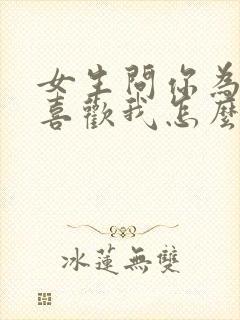 女生問你為
喜歡我怎麼
冰蓮無雙